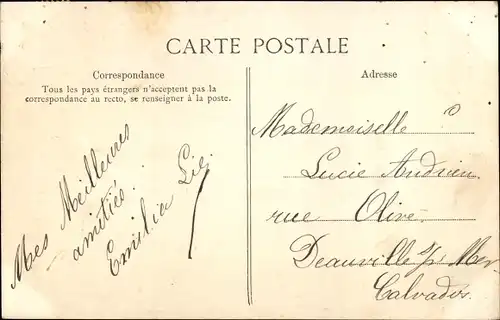 CARTE POSTALE
Correspondance
Tous les pays étrangers n'acceptent pas la
correspondance au recto, se renseigner à la poste.
Mes Meilleures
amitiés.
Emilia
Adresse
Mademoiselle
Lucie Andrieu
rue Olive
Deauville s/ Mer
Calvados.